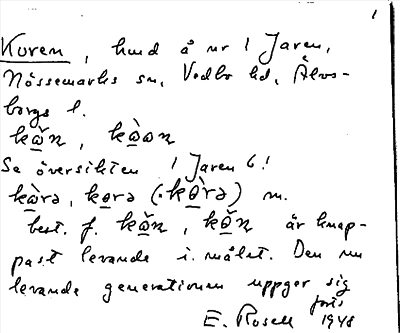 1
Kuren, hmd å nr 1 Jaren,
Nössemarks sn, Vedbo hd, Älvs-
borgs l.
kὰ̌n, kὰən
Se översikten 1 Jaren 6!
kὰrə, kɵrə (·kɵ̀rə) m.
best. f. kα̌n, kɵ̌n är knap-
past levande i målet. Den nu
levande generationen uppger sig
förts
E. Rosell 1948